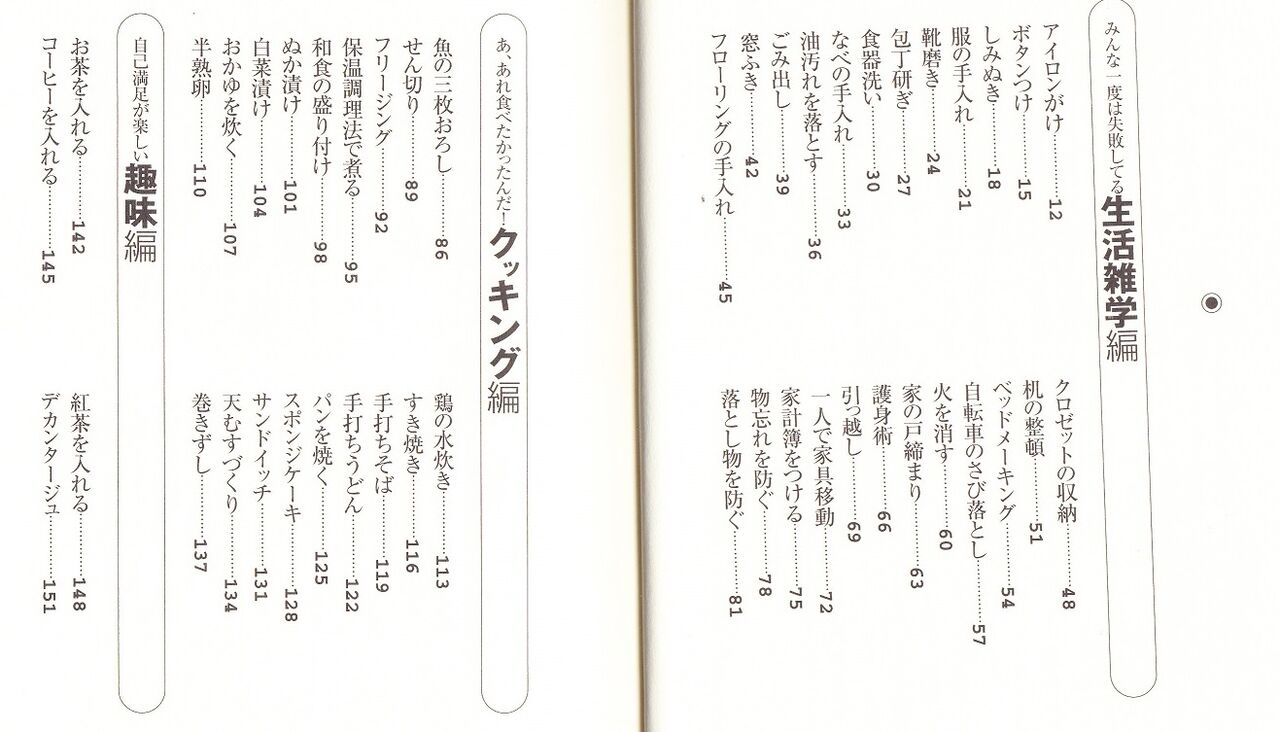 みんな一度は失敗してる生活雑学編
アイロンがけ……12
ボタンつけ……15
しみぬき……18
服の手入れ……21
靴磨き……24
包丁研ぎ……27
食器洗い……30
なべの手入れ……33
油汚れを落とす……36
ごみ出し……39
窓ふき……42
フローリングの手入れ……45
クロゼットの収納……48
机の整頓……51
ベッドメーキング……54
自転車のさび落とし……57
火を消す……60
家の戸締まり……63
護身術……66
引っ越し……69
一人で家具移動……72
家計簿をつける……75
物忘れを防ぐ……78
落とし物を防ぐ……81
あ、あれ食べたかったんだ！クッキング編
魚の三枚おろし……86
せん切り……89
フリージング……92
保温調理法で煮る……95
和食の盛り付け……98
ぬか漬け……101
白菜漬け……104
おかゆを炊く……107
半熟卵……110
鶏の水炊き……113
すき焼き……116
手打ちそば……119
手打ちうどん……122
パンを焼く……125
スポンジケーキ……128
サンドイッチ……131
天むすづくり……134
巻きずし……137
自己満足が楽しい趣味編
お茶を入れる……142
コーヒーを入れる……145
紅茶を入れる……148
デカンタージュ……151